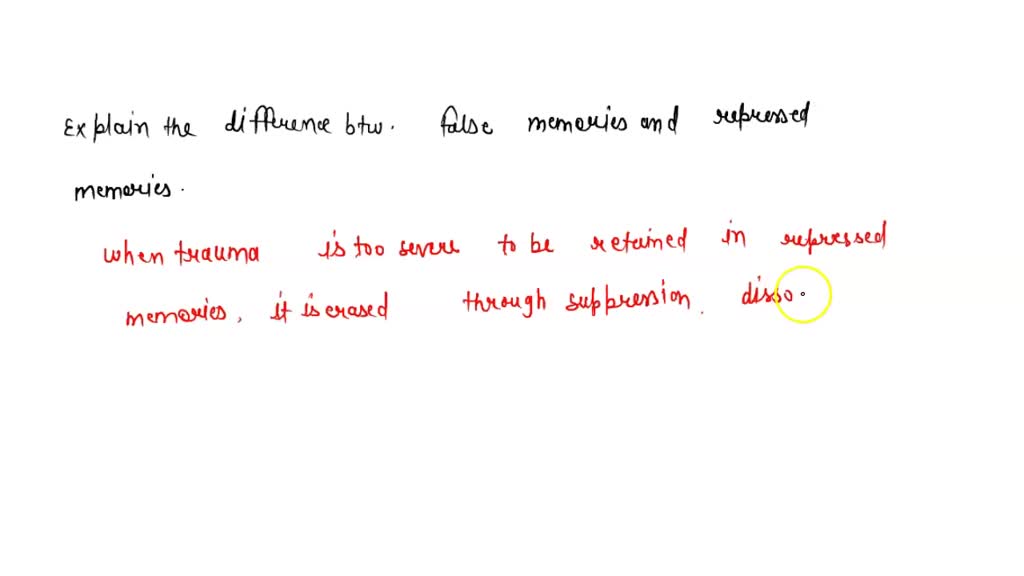 Explain the difference btw. false memories and repressed
memories.
when trauma is too severe to be retained in repressed
memories, it is erased through suppression, disso